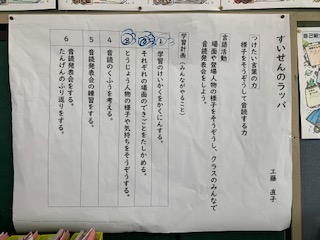 すいせんのラッパ
工藤 直子
つけたい言葉の力
様子をそうぞうして音読する力
言語活動
場面や登場人物の様子をそうぞうし、クラスのみんなで
音読発表会をしよう。
学習計画(みんながやること)
1 学習のけいかくをかくにんする。
2 それぞれの場面のできごとをたしかめる。
3 とうじょう人物の様子や気持ちをそうぞうする。
4 音読のくふうを考える。
5 音読発表会の練習をする。
6 音読発表会をする。
たんげんのふり返りをする。